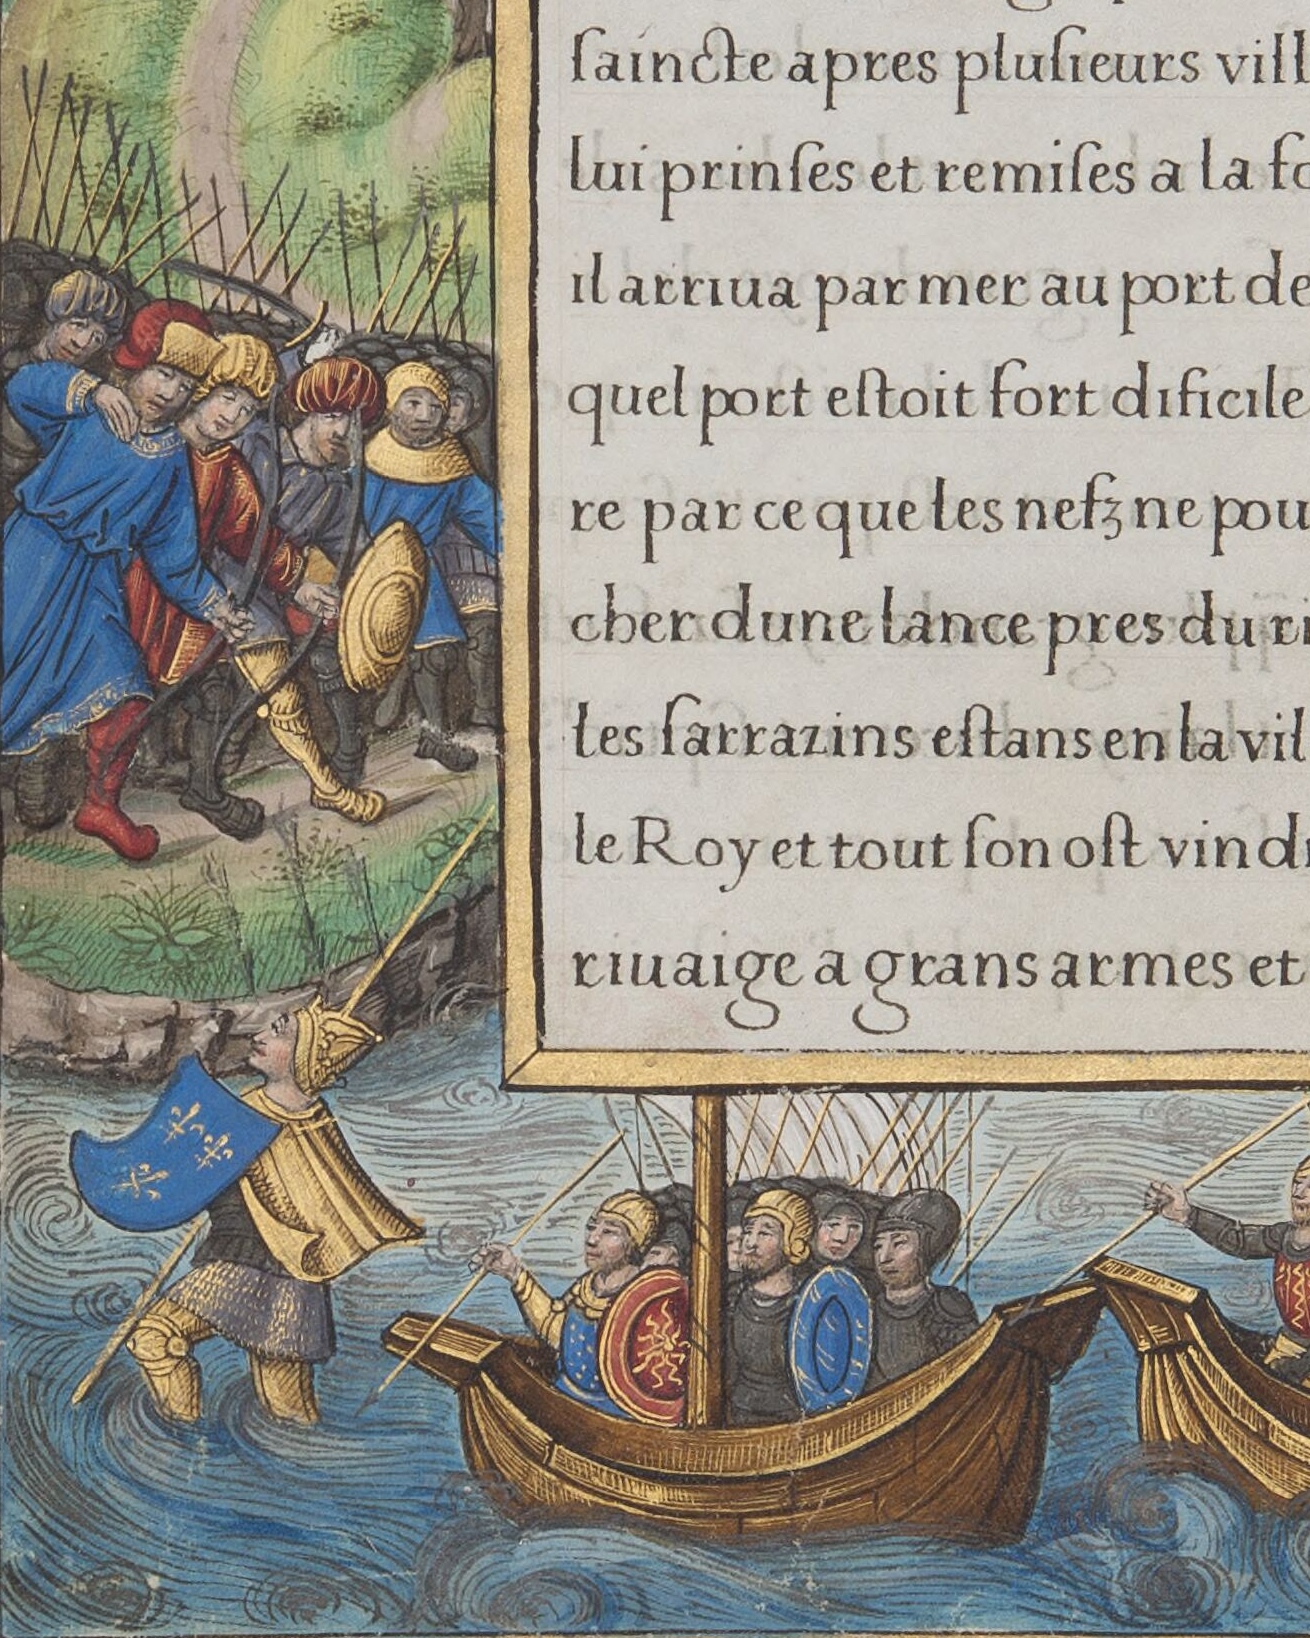 saincte apres plusieurs vill
lui prinses et remises a la fo
il arriua par mer au port de
quel port estoit fort dificile
re par ce que les nefz ne pou
cher dune lance pres du ri
les sarrazins estans en la vil
le Roy et tout son ost vind
riuaige a grans armes et